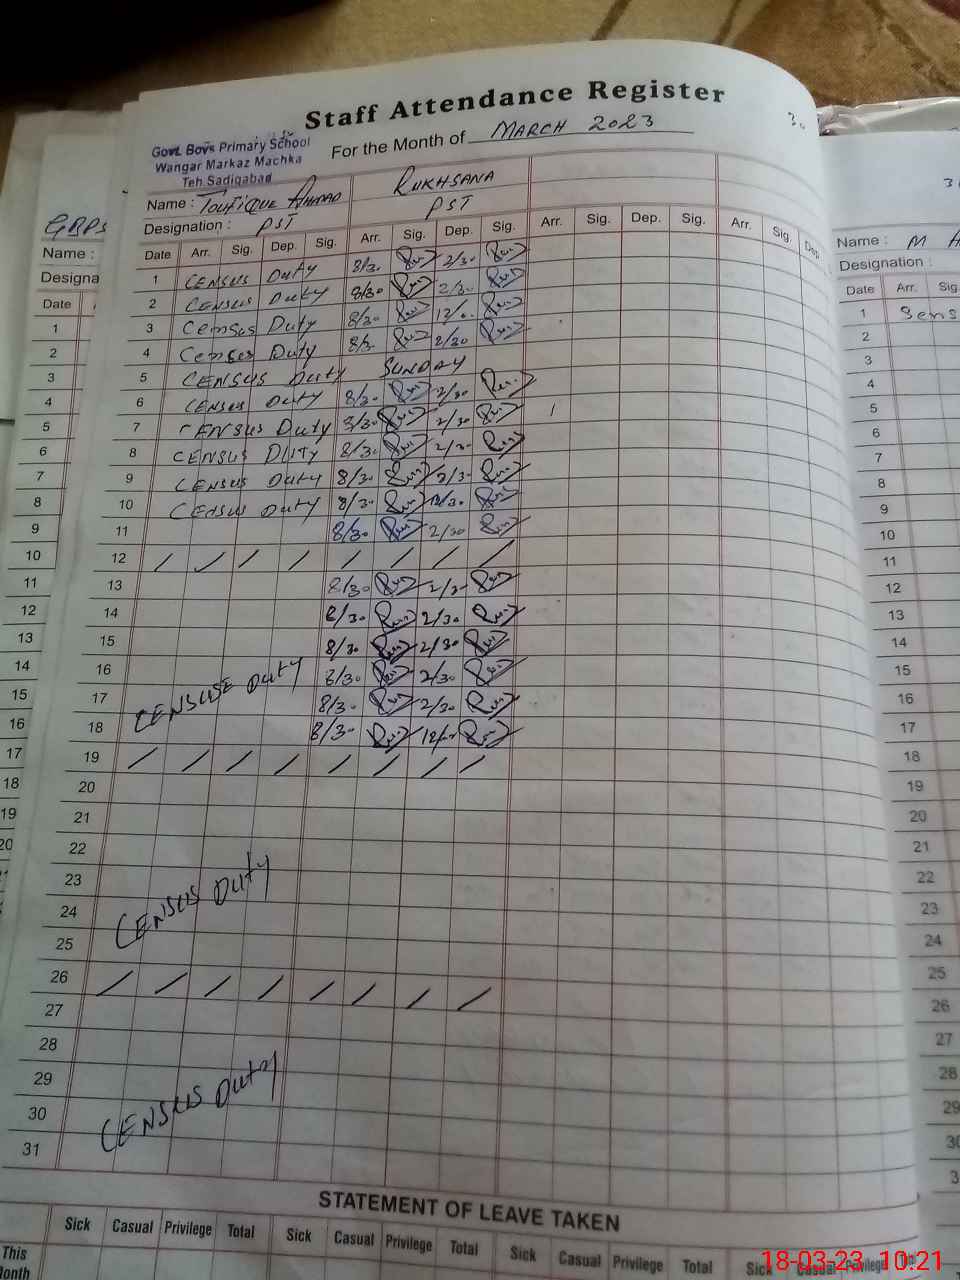 Staff Attendance Register
Govt. Boys Primary School
Wangar Markaz Machka
Teh Sadiqabad
For the Month of MARCH 2023
Name : Toufique Ahmad RUKHSANA
Designation : PST PST
Date Arr. Sig. Dep. Sig. Arr. Sig. Dep. Sig. Arr. Sig. Dep. Sig. Arr. Sig. Dep.
1 CENSUS DUTY 8/30 2/30
2 CENSUS DUTY 8/30 2/30
3 Census Duty 8/30 12/0.
4 Census Duty 8/3. 2/30
5 CENSUS DUTY SUNDAY
6 CENSUS DUTY 8/30 2/30
7 CENSUS DUTY 8/30 2/30
8 CENSUS DUTY 8/30 2/30
9 CENSUS DUTY 8/30 2/30
10 CENSUS DUTY 8/30 12/30
11 8/30 2/30
12 / / / / / / / /
13 8/30 2/30
14 8/30 2/30
15 8/30 2/30
16 CENSUSE DUTY 8/30 2/30
17 8/30 2/30
18 8/30 12/
19 / / / / / / / /
20
21
22
23
24 CENSUS DUTY
25
26 / / / / / / / /
27
28
29
30 CENSUS DUTY
31
STATEMENT OF LEAVE TAKEN
Sick Casual Privilege Total Sick Casual Privilege Total Sick Casual Privilege Total Sick Casual Privilege
This
Month
GBPS
Name :
Designa
Date
1
2
3
4
5
6
7
8
9
10
11
12
13
14
15
16
17
18
19
20
Name : M
Designation :
Date Arr. Sig.
1 Sens
2
3
4
5
6
7
8
9
10
11
12
13
14
15
16
17
18
19
20
21
22
23
24
25
26
27
28
29
30
18-03-23 10:21